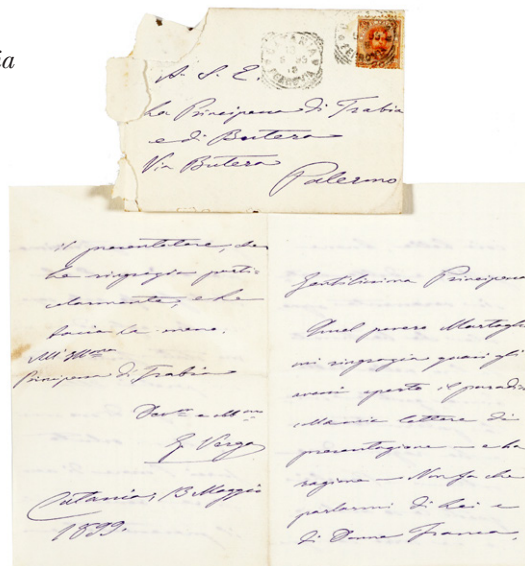 ia
A. S. E.
La Principessa di Trabia
e di Butera
Via Butera
Palermo
CATANIA
FERROVIA
il presentatore, che
La ringrazia parti-
colarmente, e che
bacia la mano.
All'Ill.ma
Principessa di Trabia
Dev.to
G Verga
Catania, 13 Maggio
1899.
Gentilissima Principessa
Quel povero Martoglio
mi ringrazia quasi gli
avessi aperto il paradiso
lettera di
presentazione – e ha
ragione – Non fa che
parlarmi di Lei e
di Donna Franca,